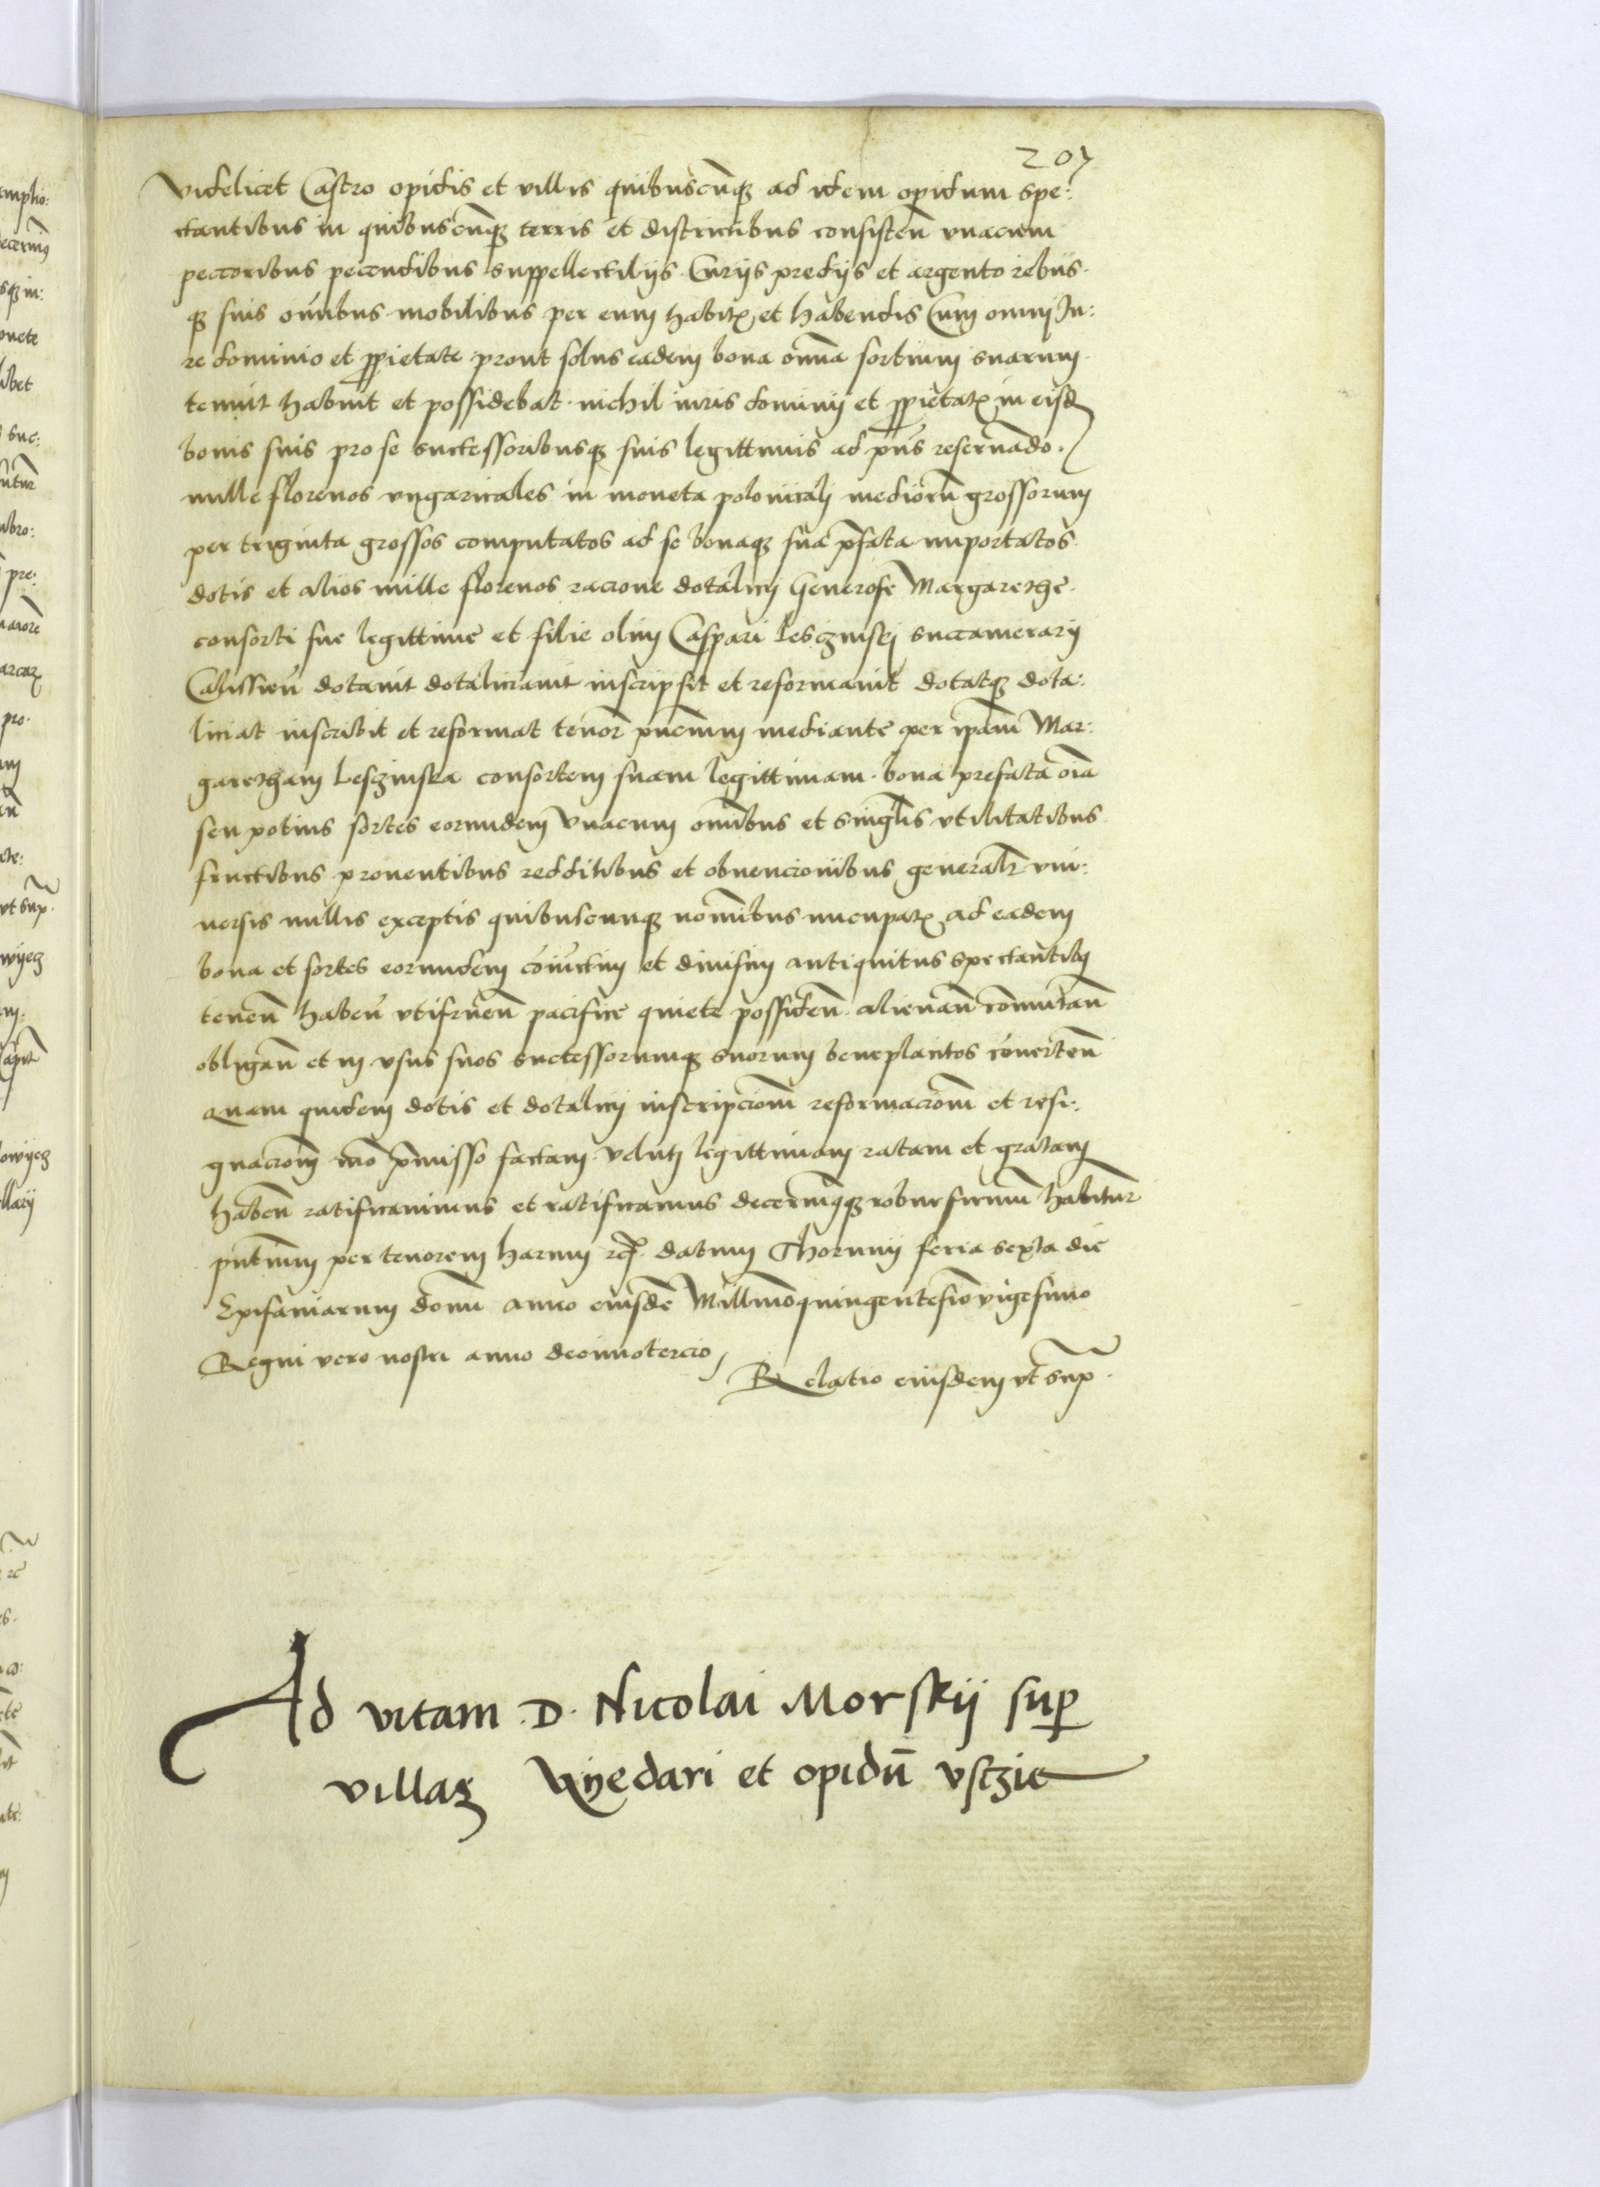 207
Videlicet Castro opidis et villis quibuscūqȝ ad idem opidum spe:
ctantibus in quibuscūqȝ terris et districtibus consisteñ vnacum
peccoribus pecudibus suppellectilijs Curijs predijs et argento rebus
qȝ suis om̄ibus mobilibus per eum habitꝭ et habendis Cum omni Ju:
re dominio et ꝓprietate prout solus eadem bona om̄ia sortium suarum
tenuit habuit et possidebat nichil iuris dominij et ꝓprietatꝭ in eisd
bonis suis pro se successoribusqȝ suis legittimis ad p̄ns reseruādo
mille florenos vngaricales in moneta polonicali mediorū grossorum
per triginta grossos computatos ad se bonaqȝ sua p̄fata importatos
dotis et alios mille florenos racione dotalicij Generose Margarethe
consorti sue legittime et filie olim Caspari Lesczinskj succamerarij
Calissieñ dotauit dotaliciauit inscripsit et reformauit dotatqȝ dota:
liciat inscribit et reformat tenor̄ p̄ncium mediante per ip̄am Mar:
garetham Lesczinska consortem suam legittimam bona prefata oīa
seu potius sortes eorundem vnacum om̄ibus et singl̄is vtilitatibus
fructibus prouentibus redditibus et obuencionibus general̄r vni:
uersis nullis exceptis quibuscunqȝ nom̄ibus nuncupatꝭ ad eadem
bona et sortes eorundem cōiūctim et diuisim antiquitus spectantibꝫ
teneñ habeñ vtifrueñ pacifice quiete possideñ alienañ cōmutañ
obligañ et in vsus suos successorumqȝ suorum beneplacitos cōuerteñ
Quam quidem dotis et dotalicij inscripcioēm reformacioēm et resi:
gnacioēm mō p̄misso factam veluti legittimam ratam et gratam
habeñ ratificauimus et ratificamus decernimꝰqȝ robur firmū habitur̄
p̄ntium per tenorem harum rc̄ datum Thorunij feria sexta die
Epifaniarum domī anno eiusdē Millīmoquingentesīo vigesimo
Regni vero nostri anno decimotercio
Relatio eiusdem vt sup̄
Ad vitam D. Nicolai Morskij sup̱
villaꝫ Wyedari et opidū vsczie